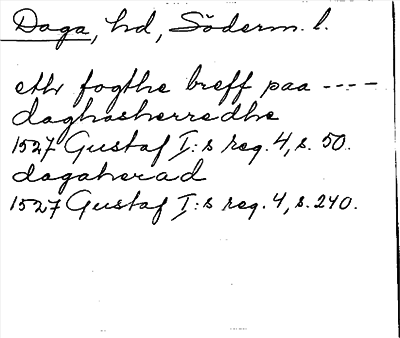 Daga, hd, Söderm. l.
ettr fogthe breff paa ----
daghasherredhe
1527 Gustaf I:s reg. 4, s. 50.
dagaherad
1527 Gustaf I:s reg. 4, s. 240.